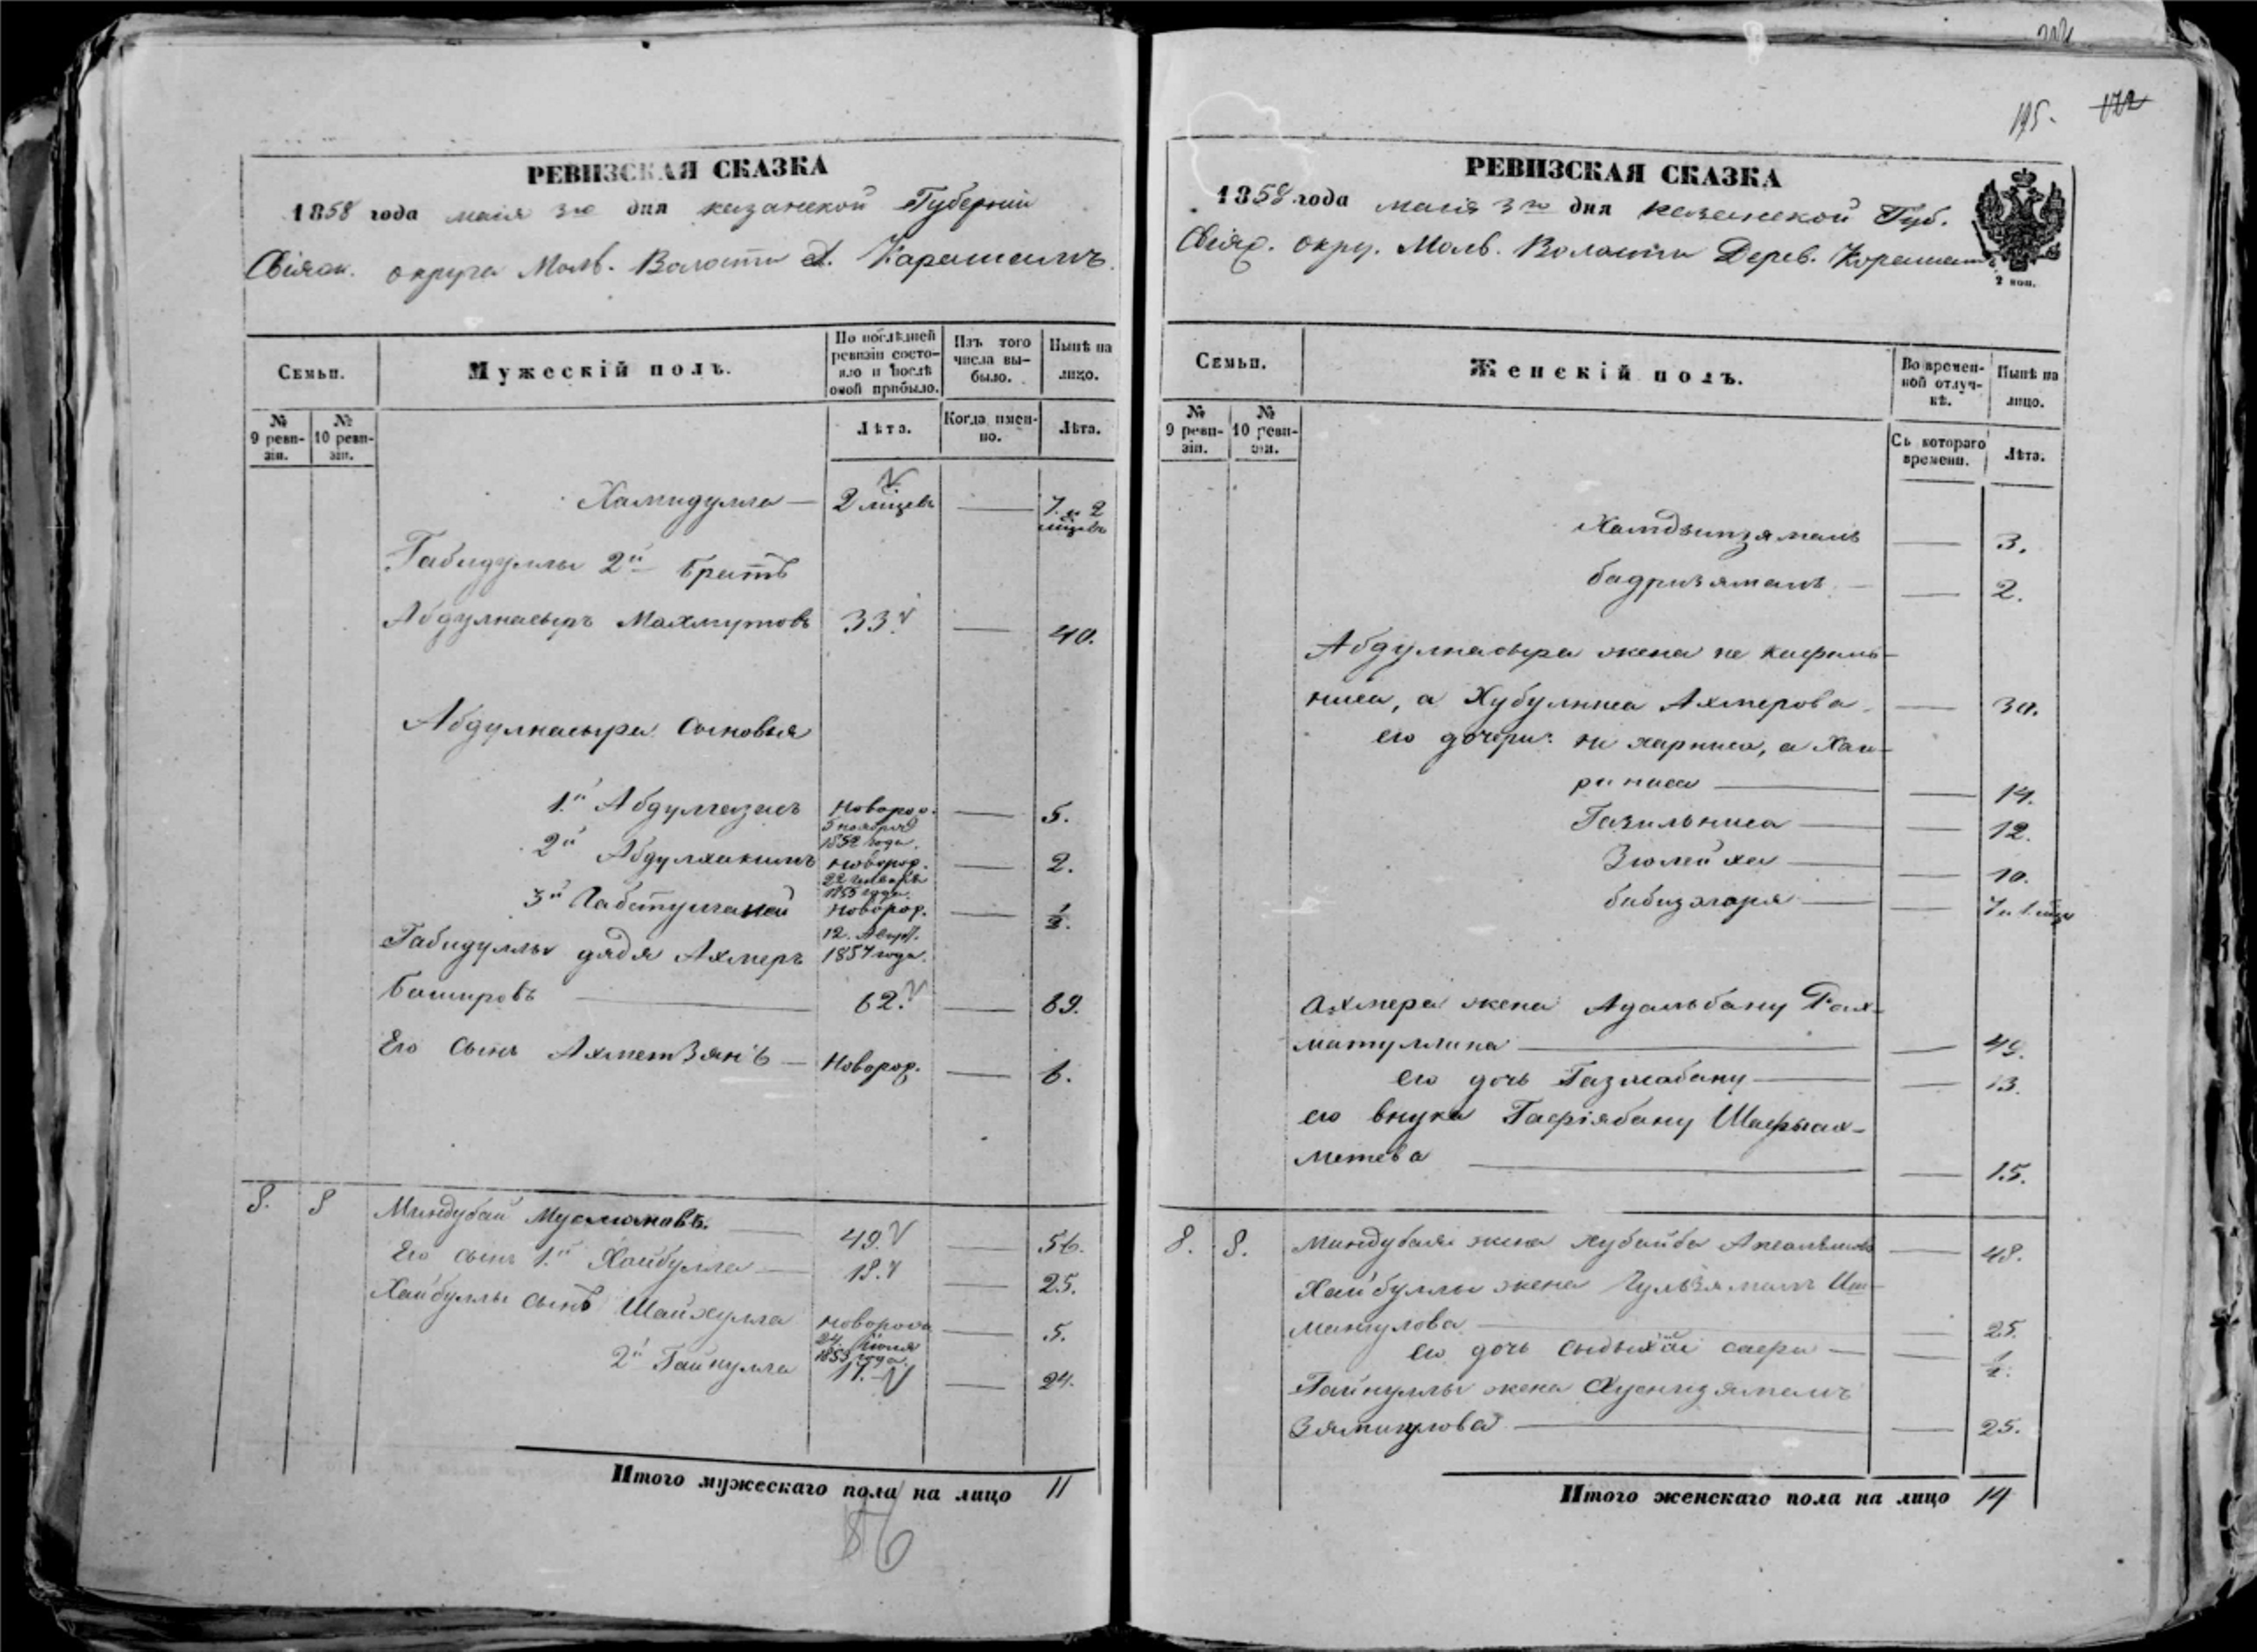 РЕВИЗСКАЯ СКАЗКА
1858 года маія 3го дня казанской Губерніи
Свіяж. округа Мольк. Волости д. Карашамъ
Семьи.
Мужескій полъ.
По послѣдней ревизіи состояло и послѣ оной прибыло.
Изъ того числа выбыло.
Нынѣ на лицо.
№ 9 ревизіи.
№ 10 ревизіи.
Лѣта.
Когда именно.
Лѣта.
Хамидулла — 2 мцевъ — 7. и 2 мцевъ
Габидуллы 2й братъ
Абдулнасыръ Махмутовъ 33. — 40.
Абдулнасыра сыновья
1.й Абдул — Новорож. 5 ноября 1852 года. — 5.
2й Абдулхакимъ Новорож. 22 Генваря 1855 года. — 2.
3й Новорож. 12. 1857 года. — ½.
Габидуллы дядя Ахмеръ
Башировъ — 62. — 69.
Его сынъ Ахметзянъ — Новорож. — 6.
8. 8 Миндубай Муслюмовъ. — 49. — 56.
Его сынъ 1.й Хайбулла — 18. — 25.
Хайбуллы сынъ Шайхулла Новорож. 24 Іюля 1853 года. — 5.
2й Гайнулла 17. — 24.
Итого мужескаго пола на лицо 11
56
195. 172
РЕВИЗСКАЯ СКАЗКА
1858 года маія 3го дня казанской Губ.
Свіяж. окру. Мольк. Волости Дерев. Корашамъ
2 коп.
Семьи.
Женскій полъ.
Во временной отлучкѣ.
Нынѣ на лицо.
№ 9 ревизіи.
№ 10 ревизіи.
Съ котораго времени.
Лѣта.
— 3.
бадризямалъ — — 2.
Абдулнасыра жена не
ниса, а Хубулниса Ахмерова — — 30.
его дочери: не харниса, а Хай-
риниса — — 14.
Газильниса — — 12.
Зюлейха — — 10.
бибизгаря — — 7 и 1. мцъ
Ахмера жена Адальбану Рах-
матуллина — — 49.
его дочь Газизабану — — 13.
его внука Гафіябану Шафыах-
метева — — 15.
8. 8. Миндубая жена Хубайба — 48.
Хайбуллы жена Гульзямалъ Иш-
мангулова — — 25.
его дочь — — ½.
Гайнуллы жена Хуснизямалъ
Зямигулова — — 25.
Итого женскаго пола на лицо 14